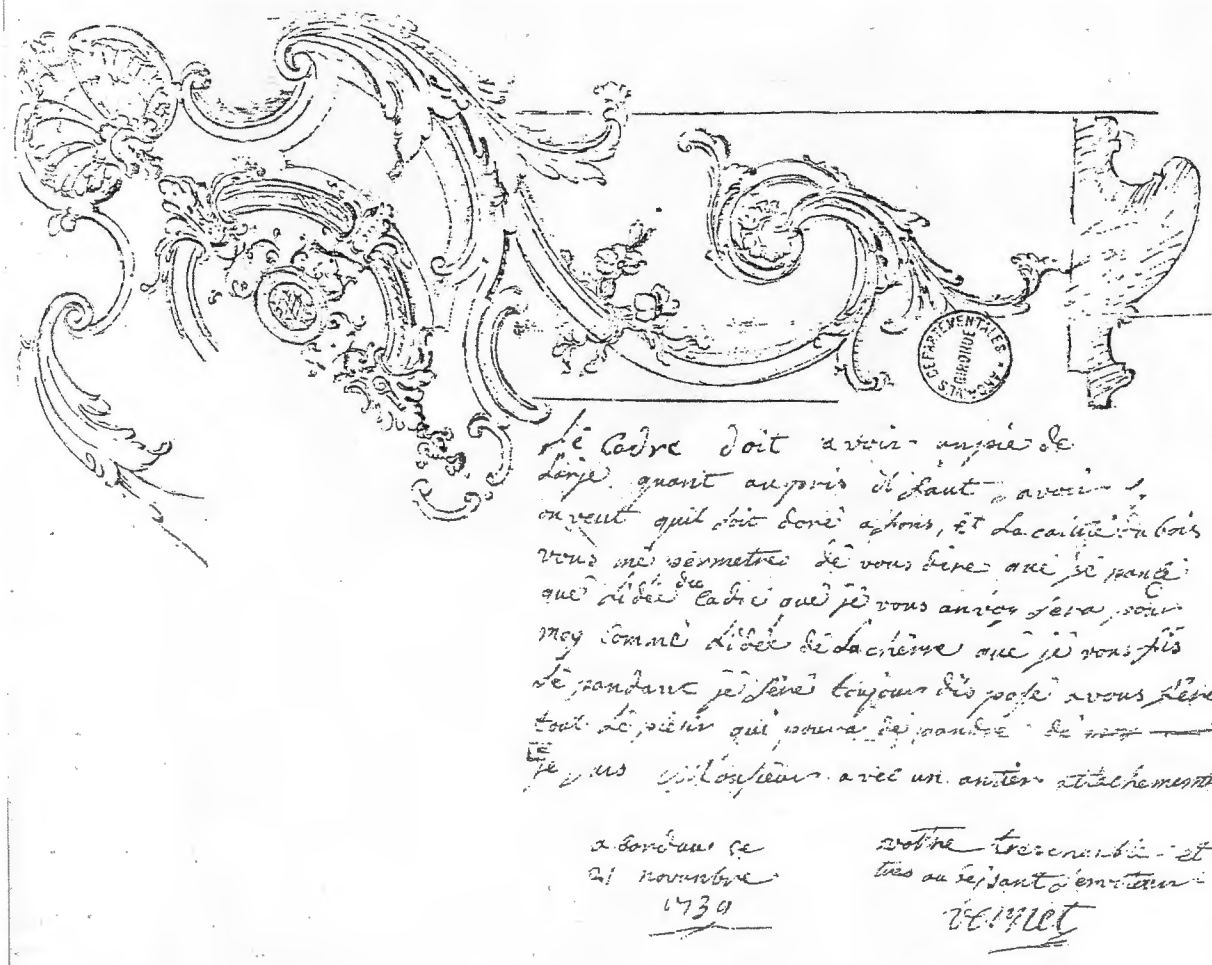 ARCHIVES DEPARTEMENTALES
GIRONDE
Lé Cadre doit avoir un pié de
Larje quant au pris il faut savoir si
on veut quil soit doré a fons, et La calité du bois
vous mé permetrez dé vous dire que jé pancé
qué L'idéé du Cadre qué jé vous anvoy sera pour
moy Comme L'idéé dé La cherre qué jé vous fis
Sé pandant jé séré toujour disposé a vous fere
tout Lé plésir qui poura dé pandre dé moy
je suis Monsieur avec un antier attachement
a bordaux ce
21 novenbre
1739
votre tres enble et
tres aubeisant serviteur
vernet